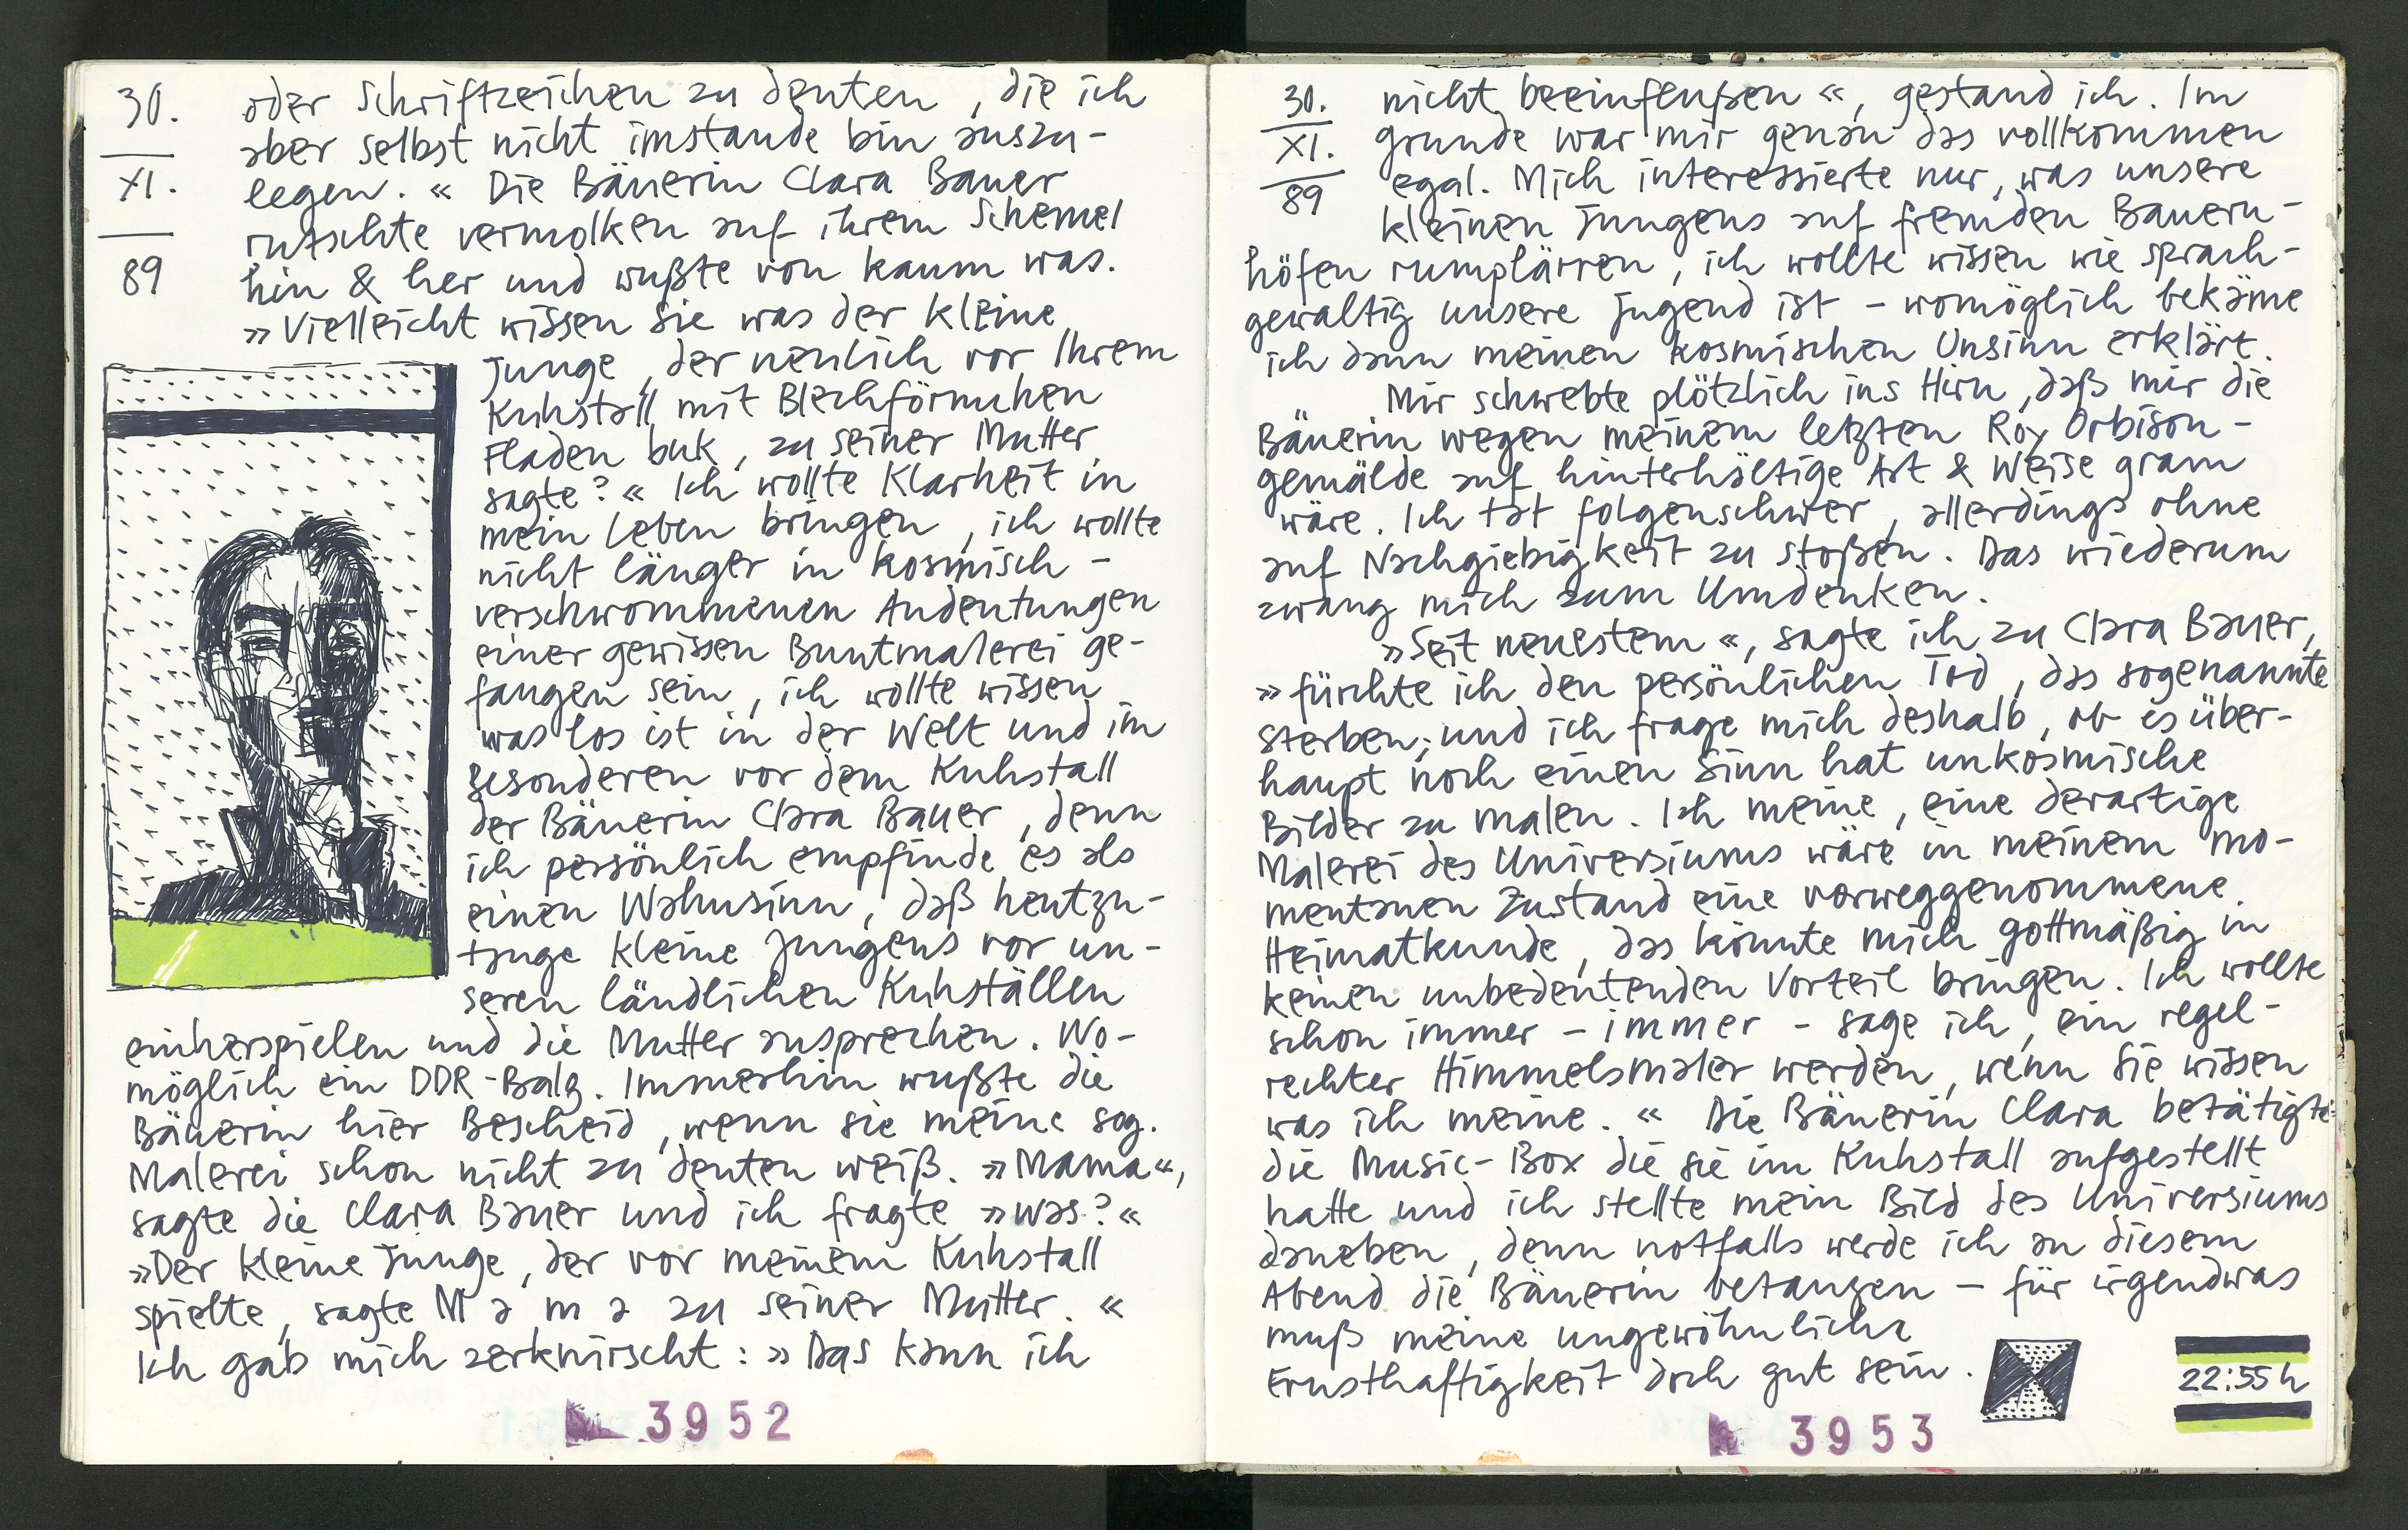 30.
XI.
89
oder Schriftzeichen zu deuten, die ich
aber selbst nicht imstande bin auszu-
legen.« Die Bäuerin Clara Bauer
rutschte vermolken auf ihrem Schemel
hin & her und wußte von kaum was.
»Vielleicht wissen Sie was der kleine
Junge, der neulich vor Ihrem
Kuhstall mit Blechförmchen
Fladen buk, zu seiner Mutter
sagte?« Ich wollte Klarheit in
mein Leben bringen, ich wollte
nicht länger in kosmisch-
verschwommenen Andeutungen
einer gewissen Buntmalerei ge-
fangen sein, ich wollte wissen
was los ist in der Welt und im
Besonderen vor dem Kuhstall
der Bäuerin Clara Bauer, denn
ich persönlich empfinde es als
einen Wahnsinn, daß heutzu-
tage kleine Jungens vor un-
seren ländlichen Kuhställen
einherspielen und die Mutter ansprechen. Wo-
möglich ein DDR-Balg. Immerhin wußte die
Bäuerin hier Bescheid, wenn sie meine sog.
Malerei schon nicht zu deuten weiß. »Mama«,
sagte die Clara Bauer und ich fragte »was?«
»Der kleine Junge, der vor meinem Kuhstall
spielte, sagte M a m a zu seiner Mutter.«
Ich gab mich zerknirscht: »Das kann ich
3952
30.
XI.
89
nicht beeinflußen«, gestand ich. Im
grunde war mir genau das vollkommen
egal. Mich interessierte nur, was unsere
kleinen Jungens auf fremden Bauern-
höfen rumplärren, ich wollte wissen wie sprach-
gewaltig unsere Jugend ist – womöglich bekäme
ich dann meinen kosmischen Unsinn erklärt.
Mir schwebte plötzlich ins Hirn, daß mir die
Bäuerin wegen meinem letzten Roy Orbison-
gemälde auf hinterhältige Art & Weise gram
wäre. Ich tat folgenschwer, allerdings ohne
auf Nachgiebigkeit zu stoßen. Das wiederum
zwang mich zum Umdenken.
»Seit neuestem«, sagte ich zu Clara Bauer,
»fürchte ich den persönlichen Tod, das sogenannte
sterben; und ich frage mich deshalb, ob es über-
haupt noch einen Sinn hat unkosmische
Bilder zu malen. Ich meine, eine derartige
Malerei des Universiums wäre in meinem mo-
mentanen Zustand eine vorweggenommene
Heimatkunde, das könnte mich gottmäßig in
keinen unbedeutenden Vorteil bringen. Ich wollte
schon immer – immer – sage ich, ein regel-
rechter Himmelsmaler werden, wenn Sie wissen
was ich meine.« Die Bäuerin Clara betätigte
die Music-Box die sie im Kuhstall aufgestellt
hatte und ich stellte mein Bild des Universiums
daneben, denn notfalls werde ich an diesem
Abend die Bäuerin betanzen – für irgendwas
muß meine ungewöhnliche
Ernsthaftigkeit doch gut sein.
22:55h
3953